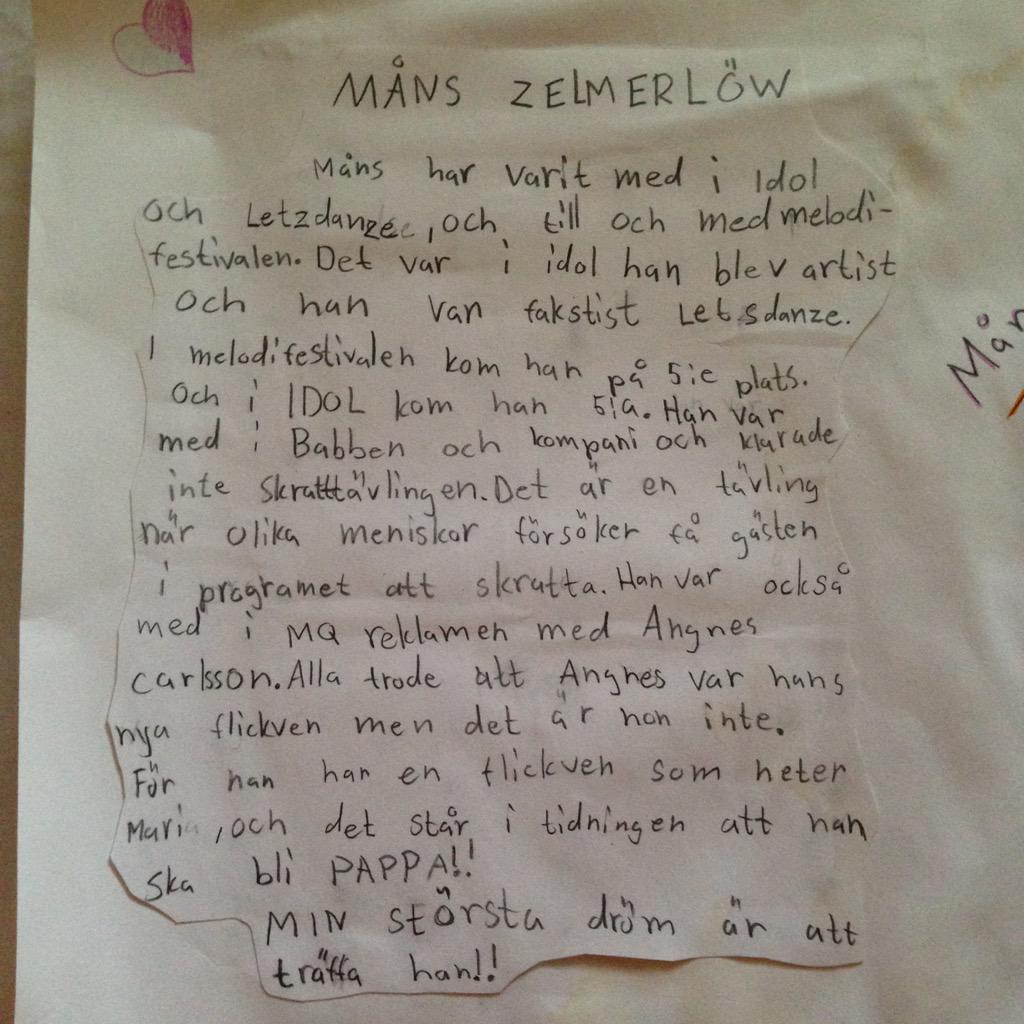 MÅNS ZELMERLÖW
Måns har varit med i Idol
och Letzdanze, och till och med melodi-
festivalen. Det var i idol han blev artist
och han van fakstist Letsdanze.
I melodifestivalen kom han på 5:e plats.
Och i IDOL kom han 5:a. Han var
med i Babben och kompani och klarade
inte skratttävlingen. Det är en tävling
när olika meniskor försöker få gästen
i programet att skratta. Han var också
med i MQ reklamen med Angnes
carlsson. Alla trode att Angnes var hans
nya flickven men det är hon inte.
För han har en flickven som heter
Maria, och det står i tidningen att han
ska bli PAPPA!!
MIN största dröm är att
träffa han!!
Mån